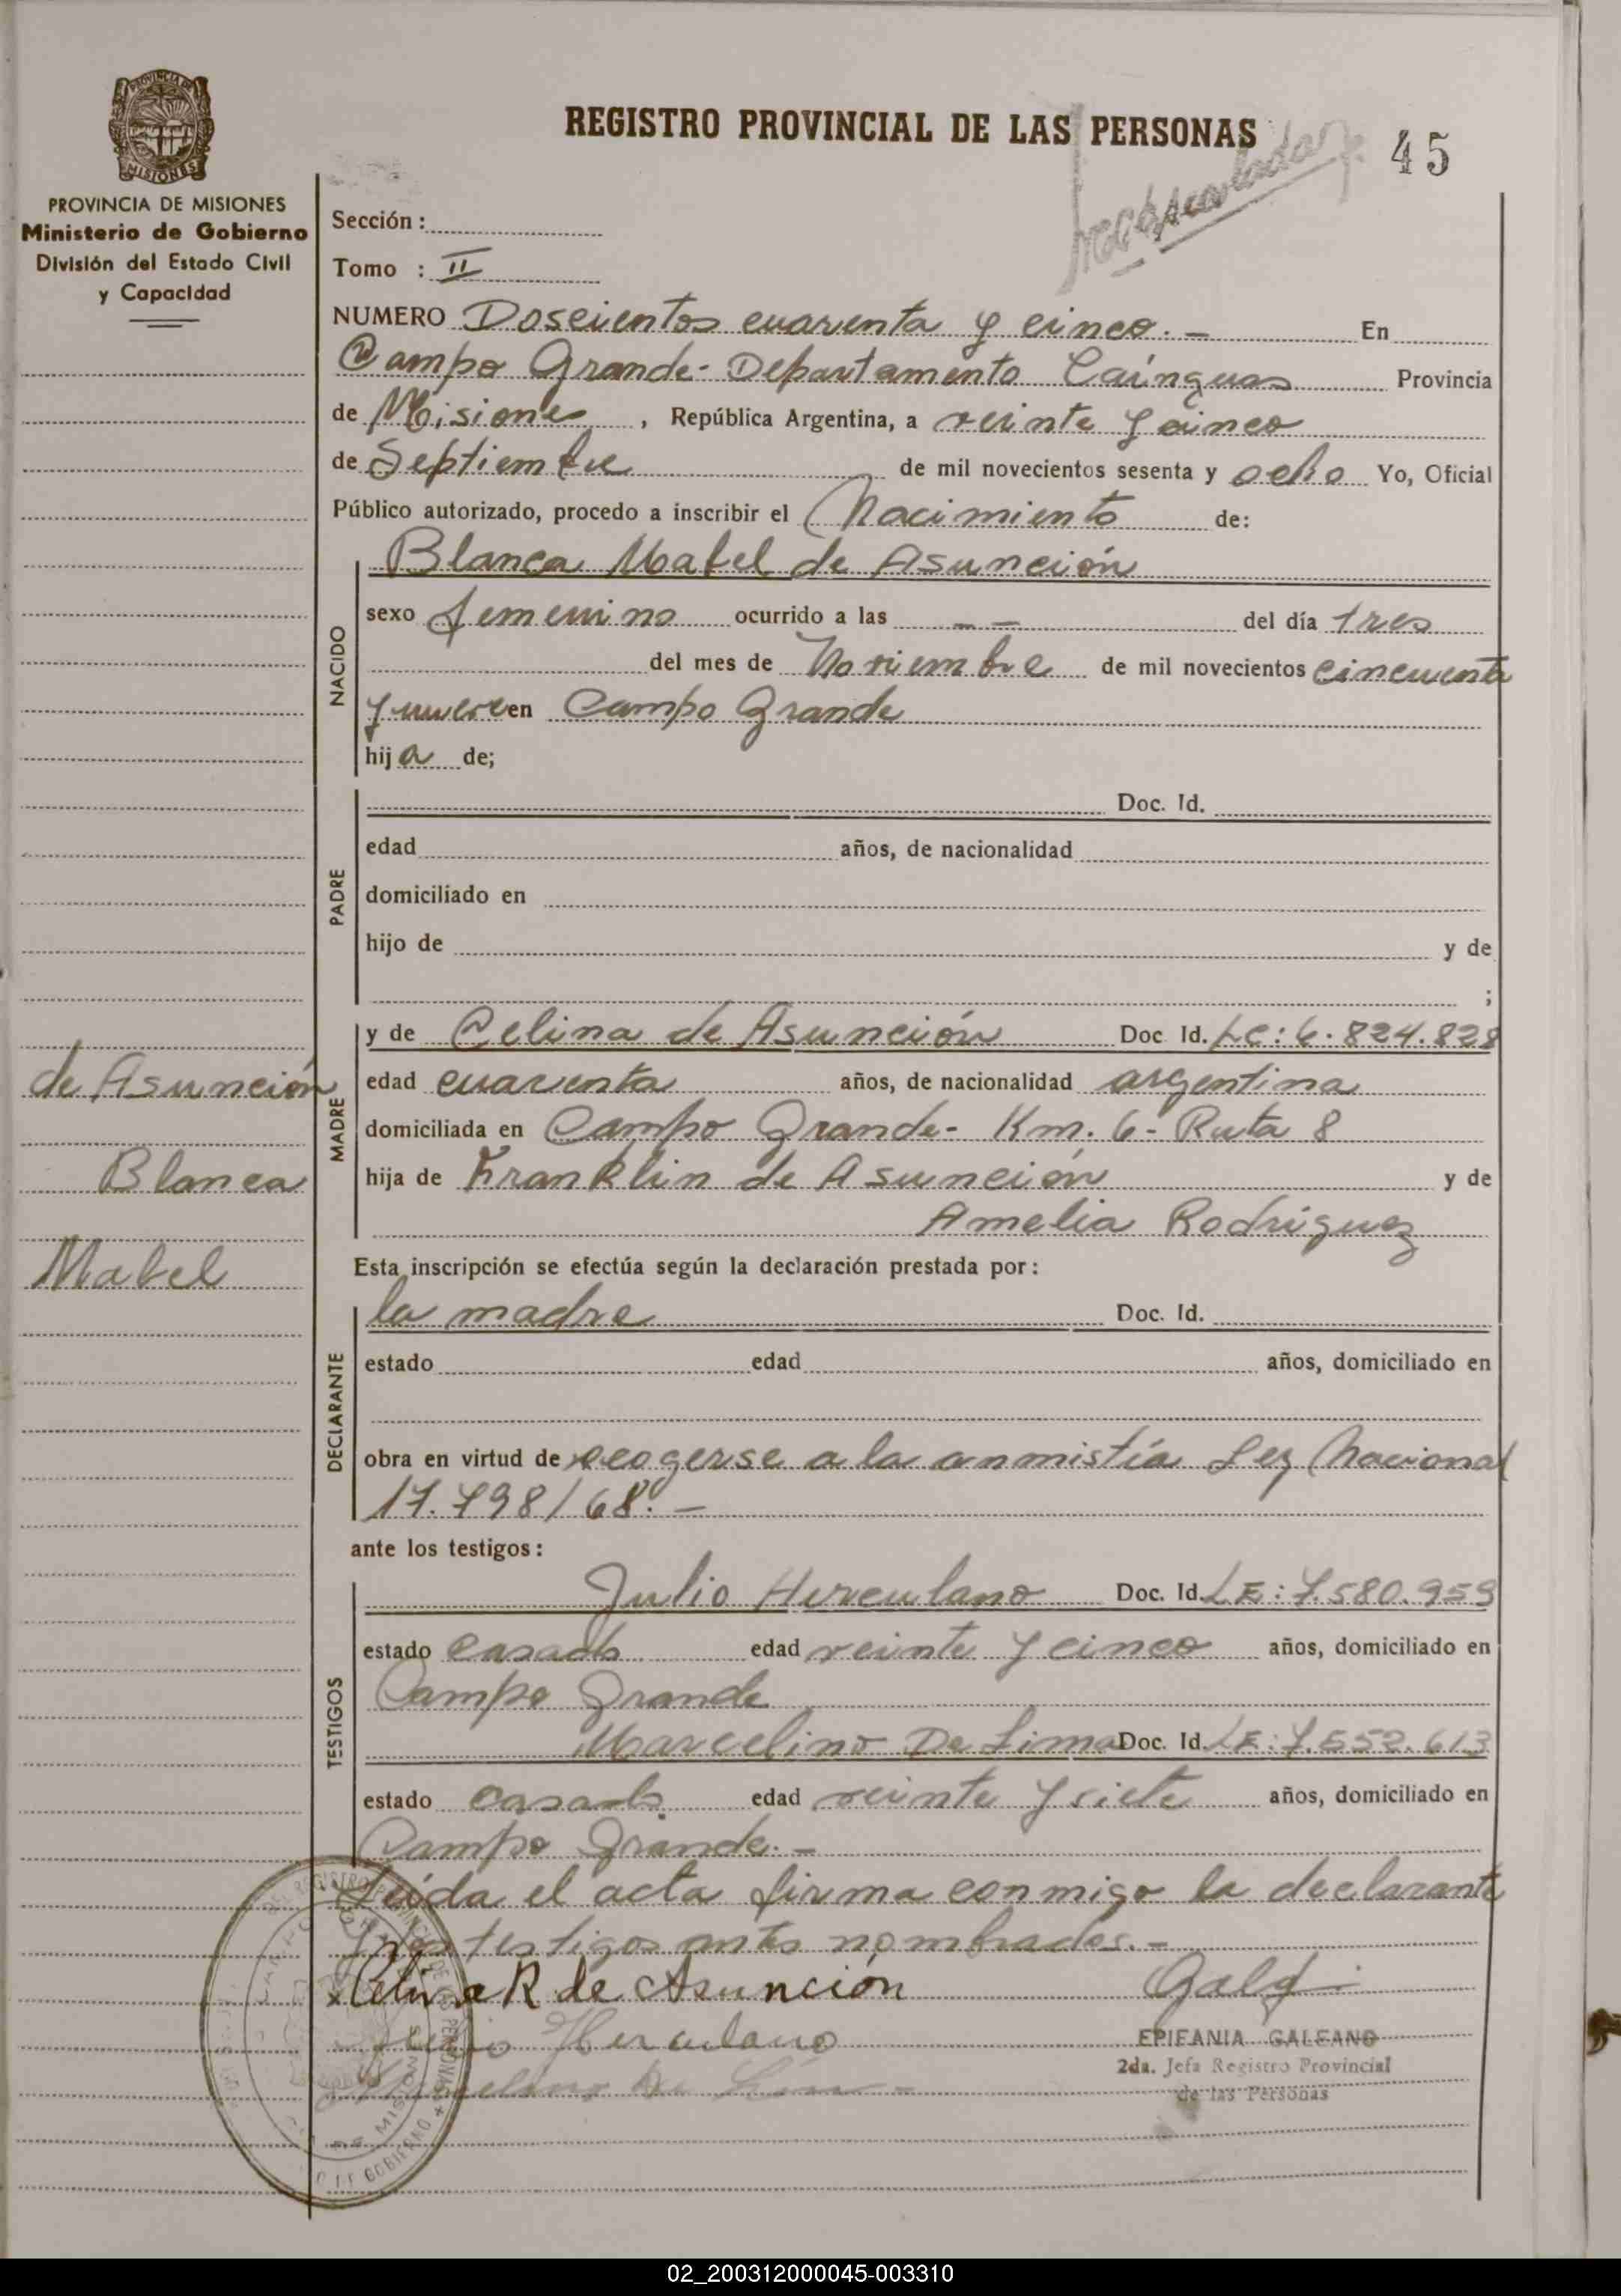 REGISTRO PROVINCIAL DE LAS PERSONAS
45
PROVINCIA DE MISIONES
Ministerio de Gobierno
División del Estado Civil
y Capacidad
Sección :
Tomo : II
NUMERO Doscientos cuarenta y cinco.- En
Campo Grande- Departamento Caínguas Provincia
de Misiones, República Argentina, a veinte y cinco
de Septiembre de mil novecientos sesenta y ocho Yo, Oficial
Público autorizado, procedo a inscribir el Nacimiento de:
NACIDO
Blanca Mabel de Asunción
sexo femenino ocurrido a las -- del día tres
del mes de Noviembre de mil novecientos cincuenta
y nueve en Campo Grande
hija de;
PADRE
Doc. Id.
edad años, de nacionalidad
domiciliado en
hijo de y de
;
MADRE
y de Celina de Asunción Doc Id. LC: 6.824.828
edad cuarenta años, de nacionalidad argentina
domiciliada en Campo Grande- Km. 6- Ruta 8
hija de Franklin de Asunción y de
Amelia Rodriguez
de Asunción
Blanca
Mabel
Esta inscripción se efectúa según la declaración prestada por:
DECLARANTE
la madre Doc. Id.
estado edad años, domiciliado en
obra en virtud de acogerse a la anmistía Ley Nacional
17.798/68.-
ante los testigos:
TESTIGOS
Julio Herculano Doc. Id. LE: 7.580.959
estado casado edad veinte y cinco años, domiciliado en
Campo Grande
Marcelino De Lima Doc. Id. LE: 7.552.613
estado casado edad veinte y siete años, domiciliado en
Campo Grande.-
Leída el acta firma conmigo la declarante
y los testigos antes nombrados.-
x Celina R de Asunción
Julio Herculano
EPIFANIA GALEANO
2da. Jefa Registro Provincial
de las Personas
02_200312000045-003310